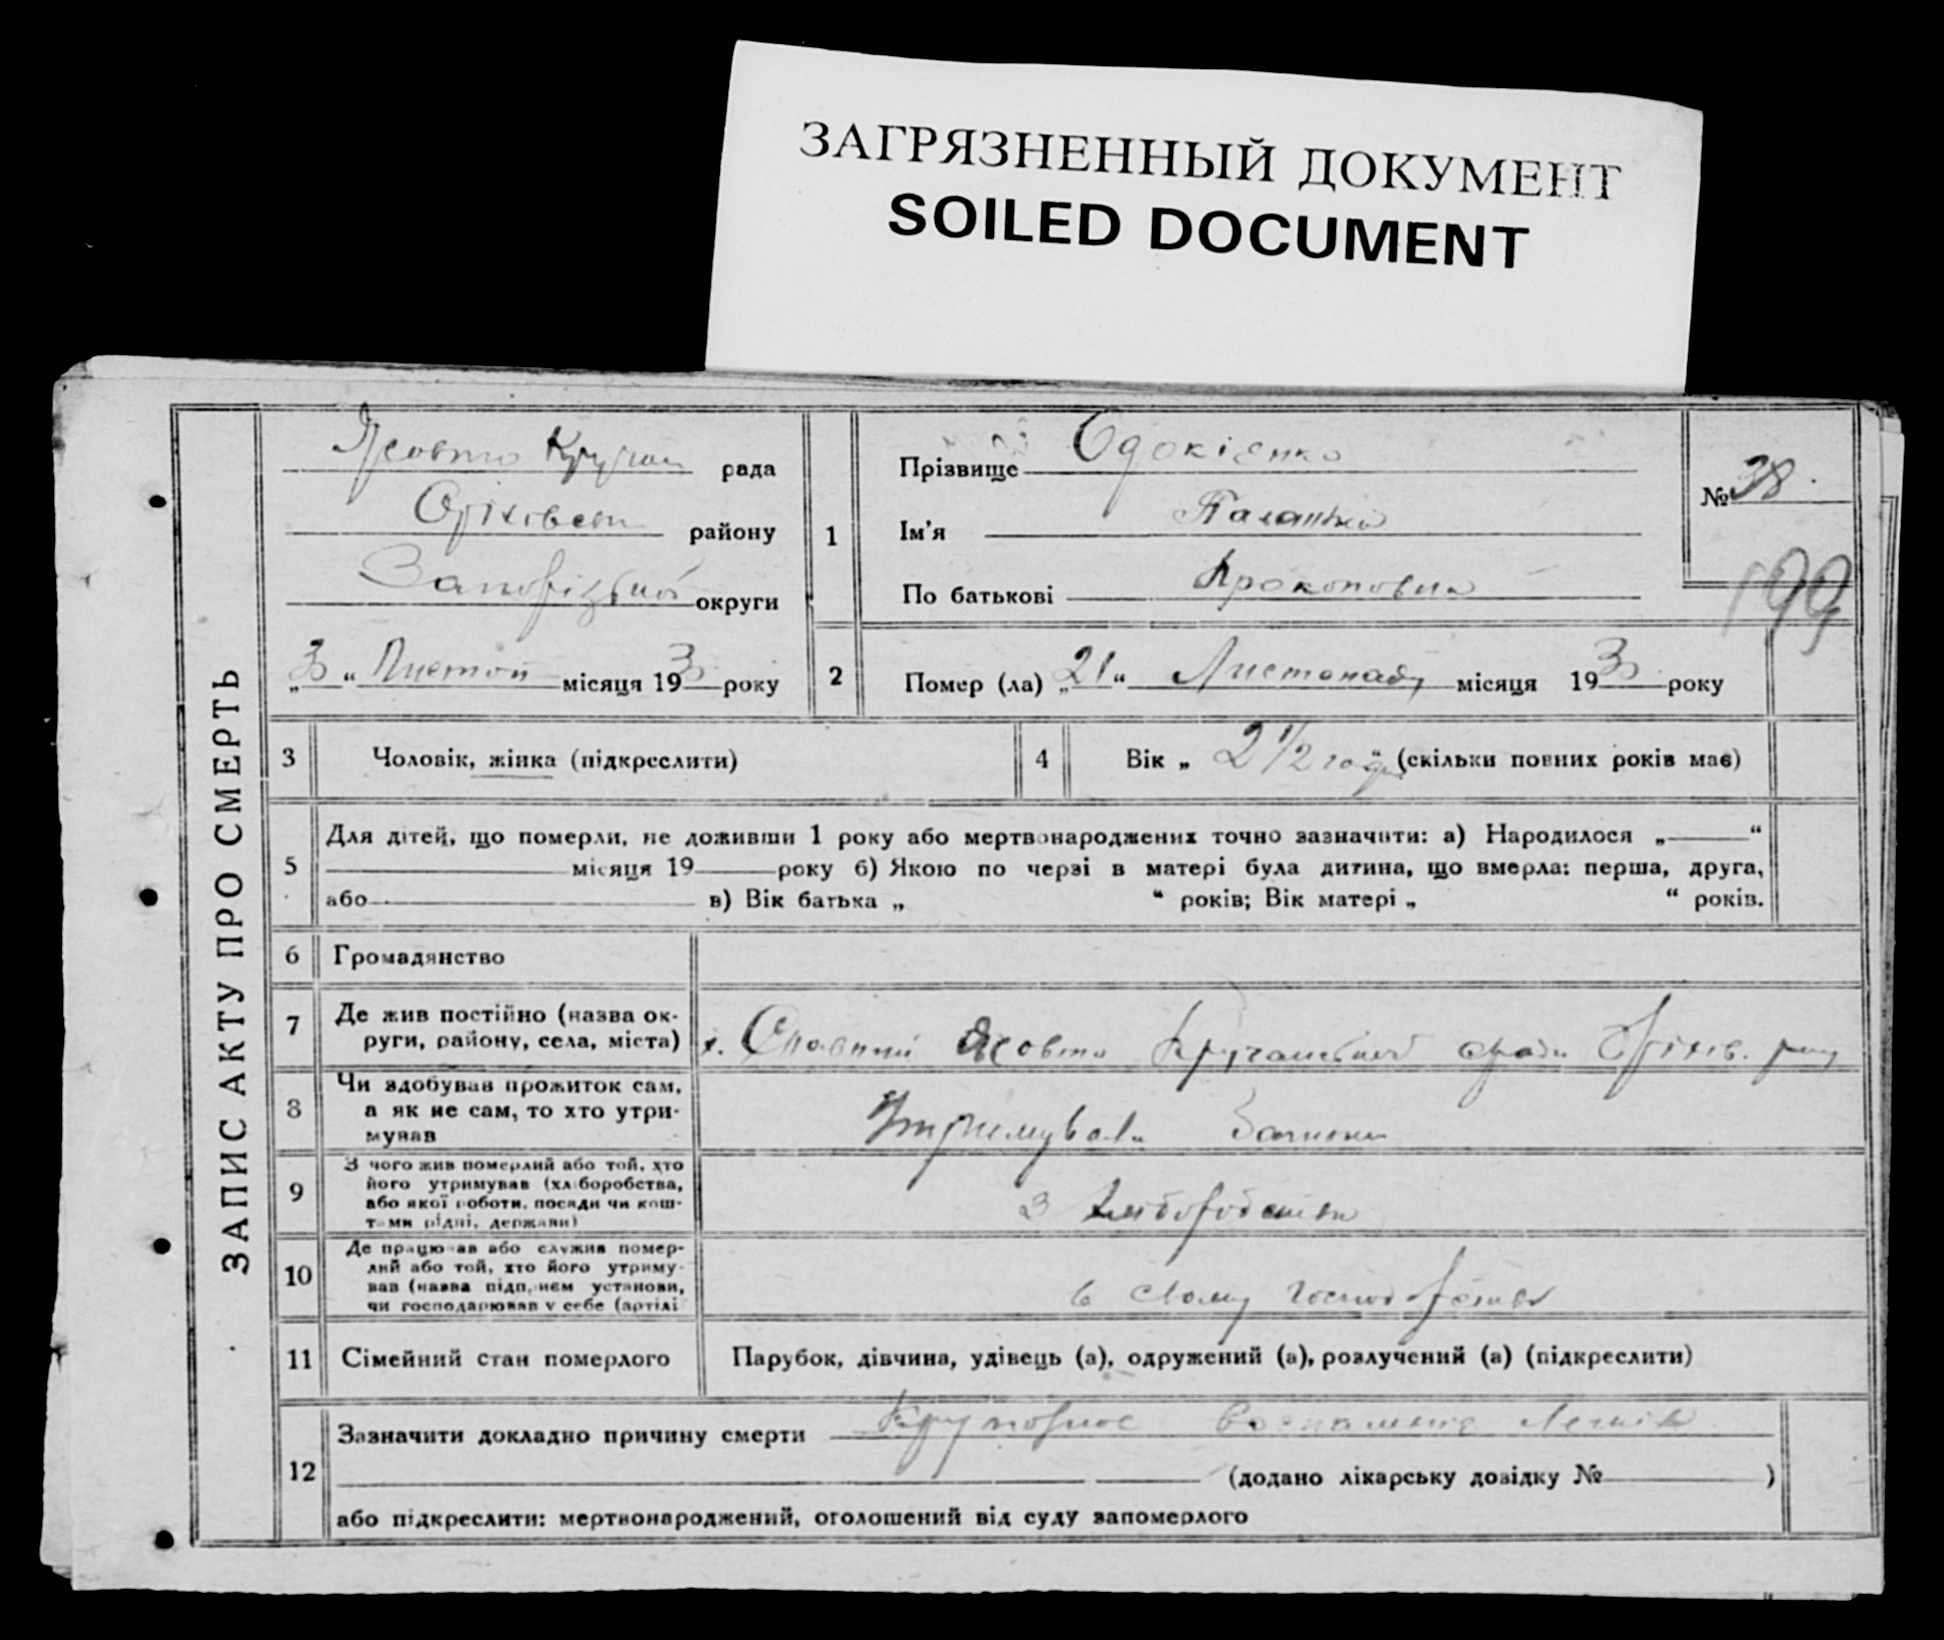 ЗАГРЯЗНЕННЫЙ ДОКУМЕНТ
SOILED DOCUMENT
ЗАПИС АКТУ ПРО СМЕРТЬ
рада
району
Запорізької округи
„3“ Листоп місяця 193 року
1
Прізвище Одокієнко
Ім'я Палашка
По батькові Прокоповна
№ 38.
199
2
Помер (ла) „21“ Листопаду місяця 193 року
3
Чоловік, жінка (підкреслити)
4
Вік „ 2 1/2 года “ (скільки повних років має)
5
Для дітей, що померли, не доживши 1 року або мертвонароджених точно зазначити: а) Народилося „ “
місяця 19 року б) Якою по черзі в матері була дитина, що вмерла: перша, друга,
або в) Вік батька „ “ років; Вік матері „ “ років.
6
Громадянство
7
Де жив постійно (назва ок-
руги, району, села, міста)
х. ради Оріхів. рну
8
Чи здобував прожиток сам,
а як не сам, то хто утри-
мував
Утримував
9
З чого жив померлий або той, хто
його утримував (хліборобства,
або якої роботи, посади чи кош-
тами рідні, держави)
З Хліборобства
10
Де працював або служив помер-
лий або той, хто його утриму-
вав (назва підприєм установи,
чи господарював у себе (артілі
в свому господарстві
11
Сімейний стан померлого
Парубок, дівчина, удівець (а), одружений (а), розлучений (а) (підкреслити)
12
Зазначити докладно причину смерти Крупозное воспаление Легких
(додано лікарську довідку № )
або підкреслити: мертвонароджений, оголошений від суду запомерлого